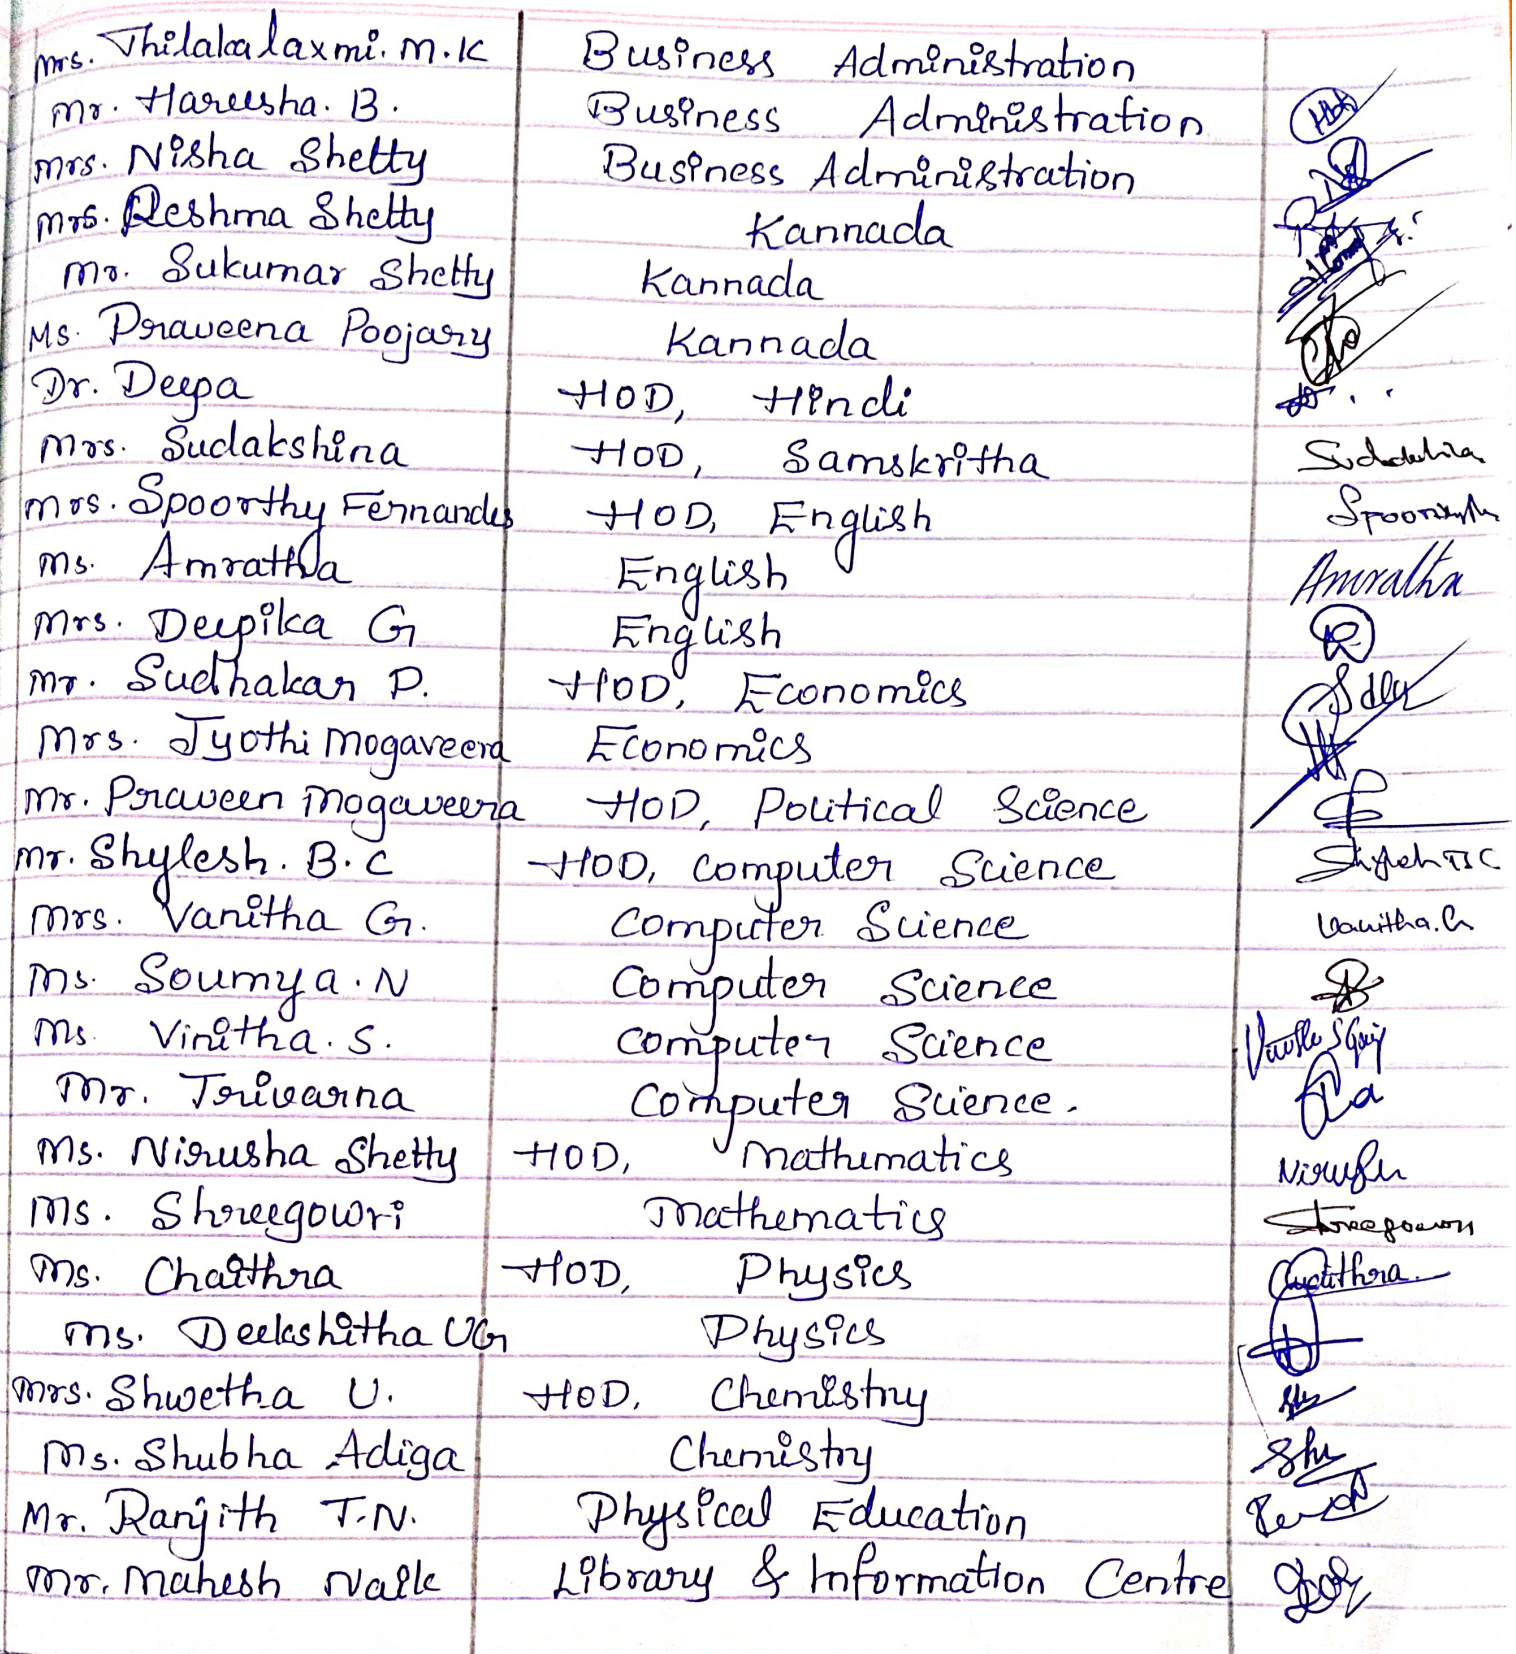 Mrs. Thilakalaxmi. M.K Business Administration
Mr. Hareesha. B. Business Administration
Mrs. Nisha Shetty Business Administration
Mrs. Reshma Shetty Kannada
Mr. Sukumar Shetty Kannada
Ms. Praveena Poojary Kannada
Dr. Deepa HOD, Hindi
Mrs. Sudakshina HOD, Samskritha
Mrs. Spoorthy Fernandes HOD, English
Ms. Amratha English Amratha
Mrs. Deepika G English
Mr. Sudhakar P. HOD, Economics
Mrs. Jyothi Mogaveera Economics
Mr. Praveen Mogaveera HOD, Political Science
Mr. Shylesh. B.C HOD, Computer Science Shylesh B C
Mrs. Vanitha G. Computer Science Vanitha. G
Ms. Soumya. N Computer Science
Ms. Vinitha. S. Computer Science
Mr. Trivarna Computer Science.
Ms. Nirusha Shetty HOD, Mathematics
Ms. Shreegowri Mathematics Shreegowri
Ms. Chaithra HOD, Physics Chaithra.
Ms. Deekshitha UG Physics
Mrs. Shwetha U. HOD, Chemistry
Ms. Shubha Adiga Chemistry
Mr. Ranjith T.N. Physical Education
Mr. Mahesh Naik Library & Information Centre